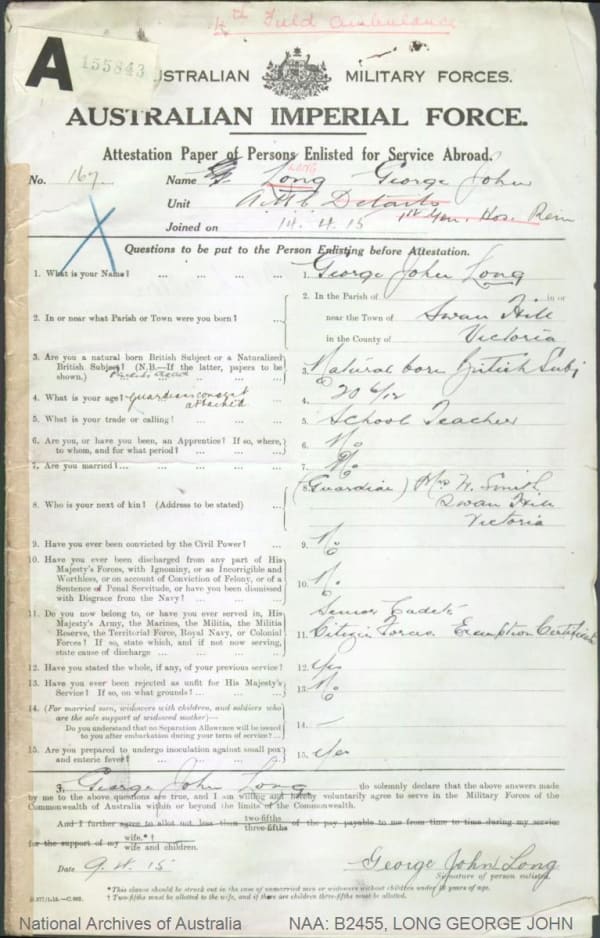 4th Field Ambulance
A 155843
AUSTRALIAN MILITARY FORCES.
AUSTRALIAN IMPERIAL FORCE.
Attestation Paper of Persons Enlisted for Service Abroad.
LONG
No. 167 Name G. Long George John
Unit A.M.C. Details 1st Gen. Hos. Rein
Joined on 14.4.15
Questions to be put to the Person Enlisting before Attestation.
1. What is your Name? ... ... ... ... 1. George John Long
2. In or near what Parish or Town were you born? ... 2. In the Parish of in or
near the Town of Swan Hill
in the County of Victoria
3. Are you a natural born British Subject or a Naturalized
British Subject? (N.B.—If the latter, papers to be
shown.) ... ... ... 3. Natural born British Subj
4. What is your age? Guardians consent attached 4. 20 6/12
5. What is your trade or calling? ... ... ... 5. School Teacher
6. Are you, or have you been, an Apprentice? If so, where,
to whom, and for what period? ... ... ... 6. No
7. Are you married? ... ... ... ... 7. No
8. Who is your next of kin? (Address to be stated) ... 8. (Guardian) Mrs W. Smith
Swan Hill
Victoria
9. Have you ever been convicted by the Civil Power? ... 9. No
10. Have you ever been discharged from any part of His
Majesty's Forces, with Ignominy, or as Incorrigible and
Worthless, or on account of Conviction of Felony, or of a
Sentence of Penal Servitude, or have you been dismissed
with Disgrace from the Navy? ... ... ... 10. No
11. Do you now belong to, or have you ever served in, His
Majesty's Army, the Marines, the Militia, the Militia
Reserve, the Territorial Force, Royal Navy, or Colonial
Forces? If so, state which, and if not now serving,
state cause of discharge ... ... ... 11. Senior Cadets
Citizen Forces Exemption Certificate
12. Have you stated the whole, if any, of your previous service? 12. Yes
13. Have you ever been rejected as unfit for His Majesty's
Service? If so, on what grounds? ... ... ... 13. No
14. (For married men, widowers with children, and soldiers who
are the sole support of widowed mother)—
Do you understand that no Separation Allowance will be issued
to you after embarkation during your term of service? ... 14. —
15. Are you prepared to undergo inoculation against small pox
and enteric fever? ... ... ... ... 15. Yes
I, George John Long do solemnly declare that the above answers made
by me to the above questions are true, and I am willing and hereby voluntarily agree to serve in the Military Forces of the
Commonwealth of Australia within or beyond the limits of the Commonwealth.
And I further agree to allot not less than two-fifths three-fifths of the pay payable to me from time to time during my service
for the support of my wife.*† wife and children.
Date 9.4.15 George John Long
Signature of person enlisted.
*This clause should be struck out in the case of unmarried men or widowers without children under 18 years of age.
† Two-fifths must be allotted to the wife, and if there are children three-fifths must be allotted.
National Archives of Australia NAA: B2455, LONG GEORGE JOHN